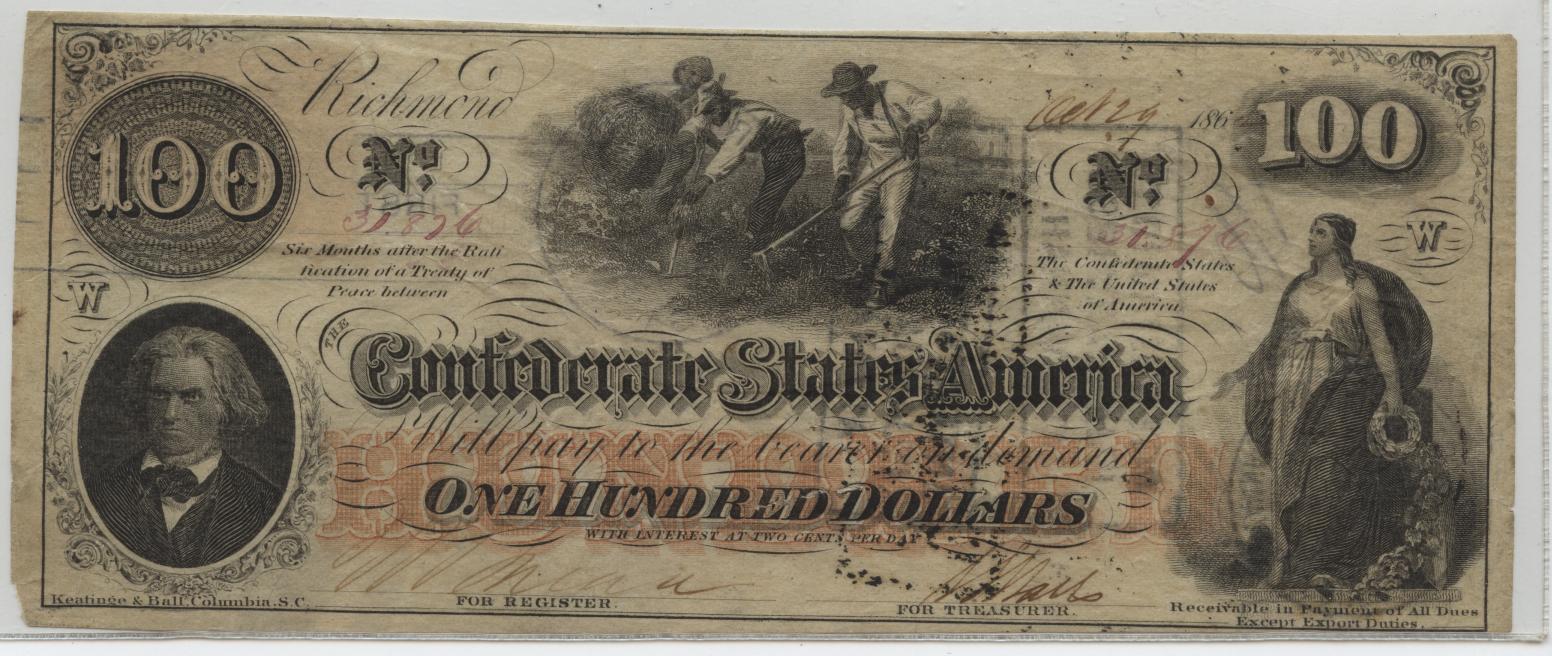 Richmond
Oct 29 186
100
100
No
No
31876
31876
Six Months after the Rati
fication of a Treaty of
Peace between
The Confederate States
& The United States
of America
W
W
THE
Confederate States America
Will pay to the bearer on demand
HUNDRED
ONE HUNDRED DOLLARS
WITH INTEREST AT TWO CENTS PER DAY
Keatinge & Ball, Columbia, S.C.
FOR REGISTER.
FOR TREASURER.
Receivable in Payment of All Dues
Except Export Duties.